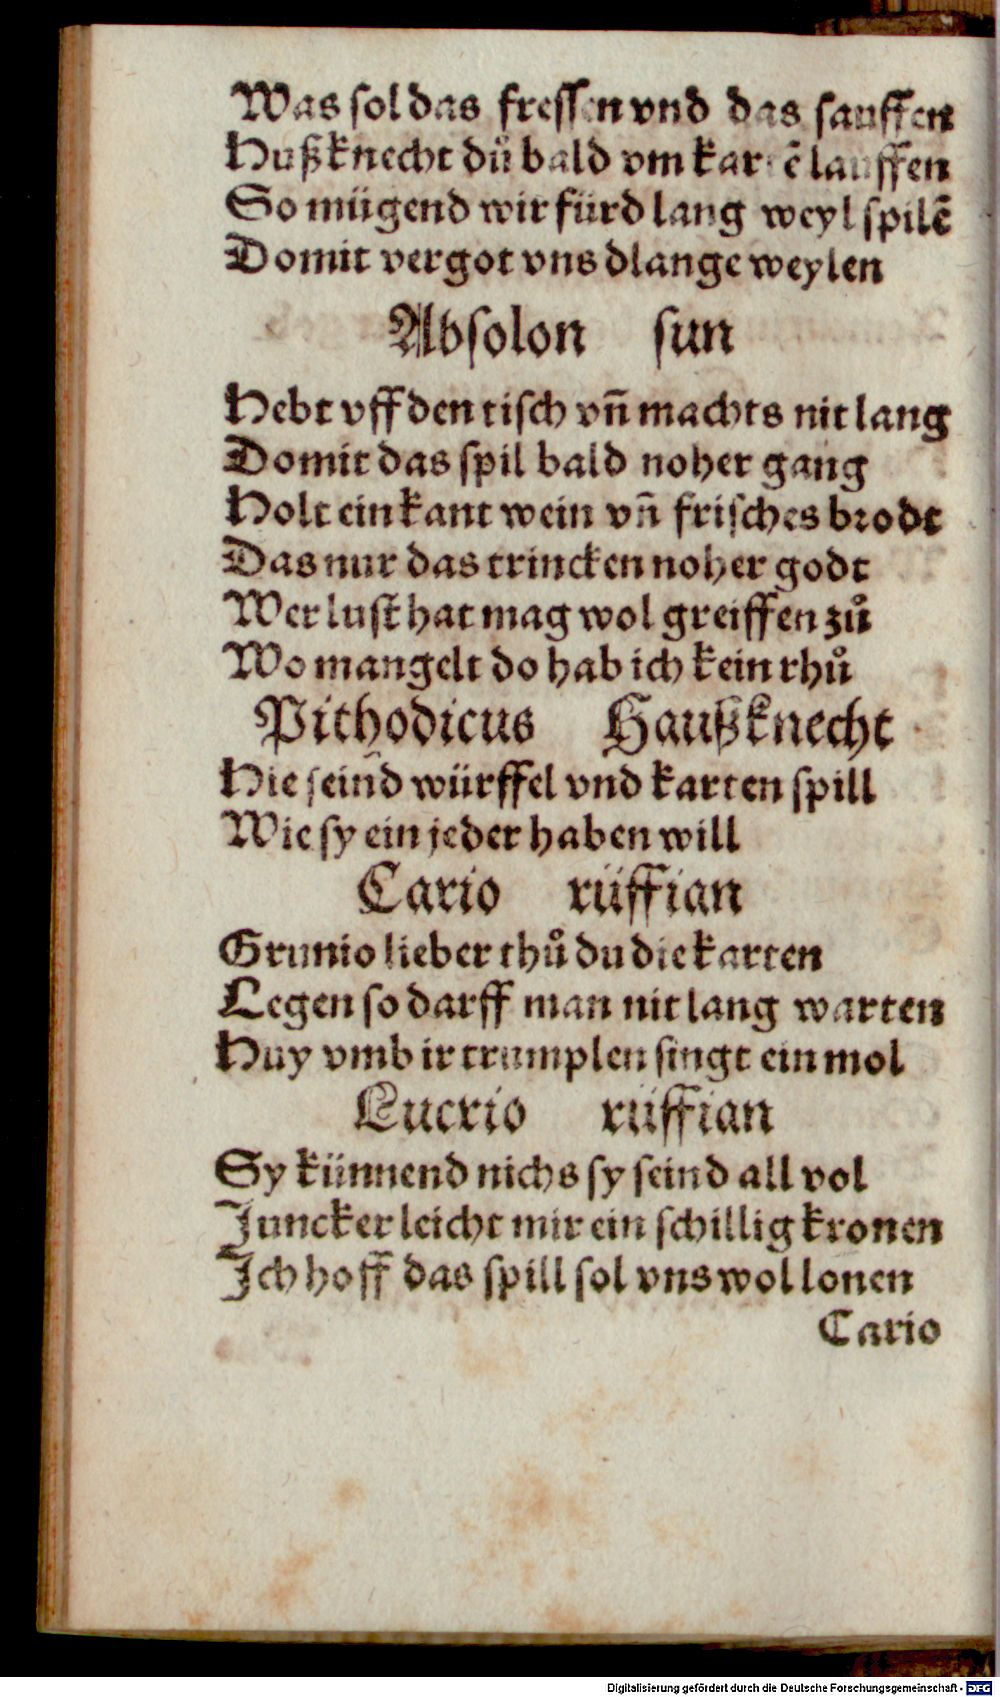 Was sol das fressen vnd das sauffen
Hußknecht dů bald vm kartē lauffen
So mügend wir fürd lang weyl spilē
Domit vergot vns dlange weylen
Absolon sun
Hebt vff den tisch vn̄ machts nit lang
Domit das spil bald noher gang
Holt ein kant wein vn̄ frisches brodt
Das nur das trincken noher godt
Wer lust hat mag wol greiffen zů
Wo mangelt do hab ich kein rhů
Pithodicus Haußknecht
Hie seind würffel vnd karten spill
Wie sy ein jeder haben will
Cario rüffian
Grunio lieber thů du die karten
Legen so darff man nit lang warten
Huy vmb ir trumplen singt ein mol
Lucrio rüffian
Sy künnend nichs sy seind all vol
Juncker leicht mir ein schillig kronen
Ich hoff das spill sol vns wol lonen
Cario
Digitalisierung gefördert durch die Deutsche Forschungsgemeinschaft - DFG